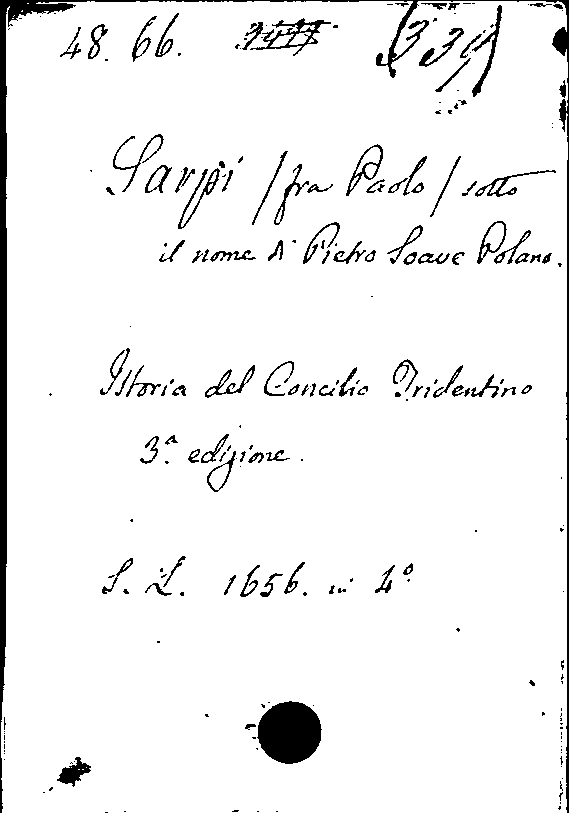 48. 66. (339)
Sarpi / fra Paolo / sotto
il nome di Pietro Soave Polano.
Istoria del Concilio Tridentino
3.ª edizione.
S. L. 1656. in 4º